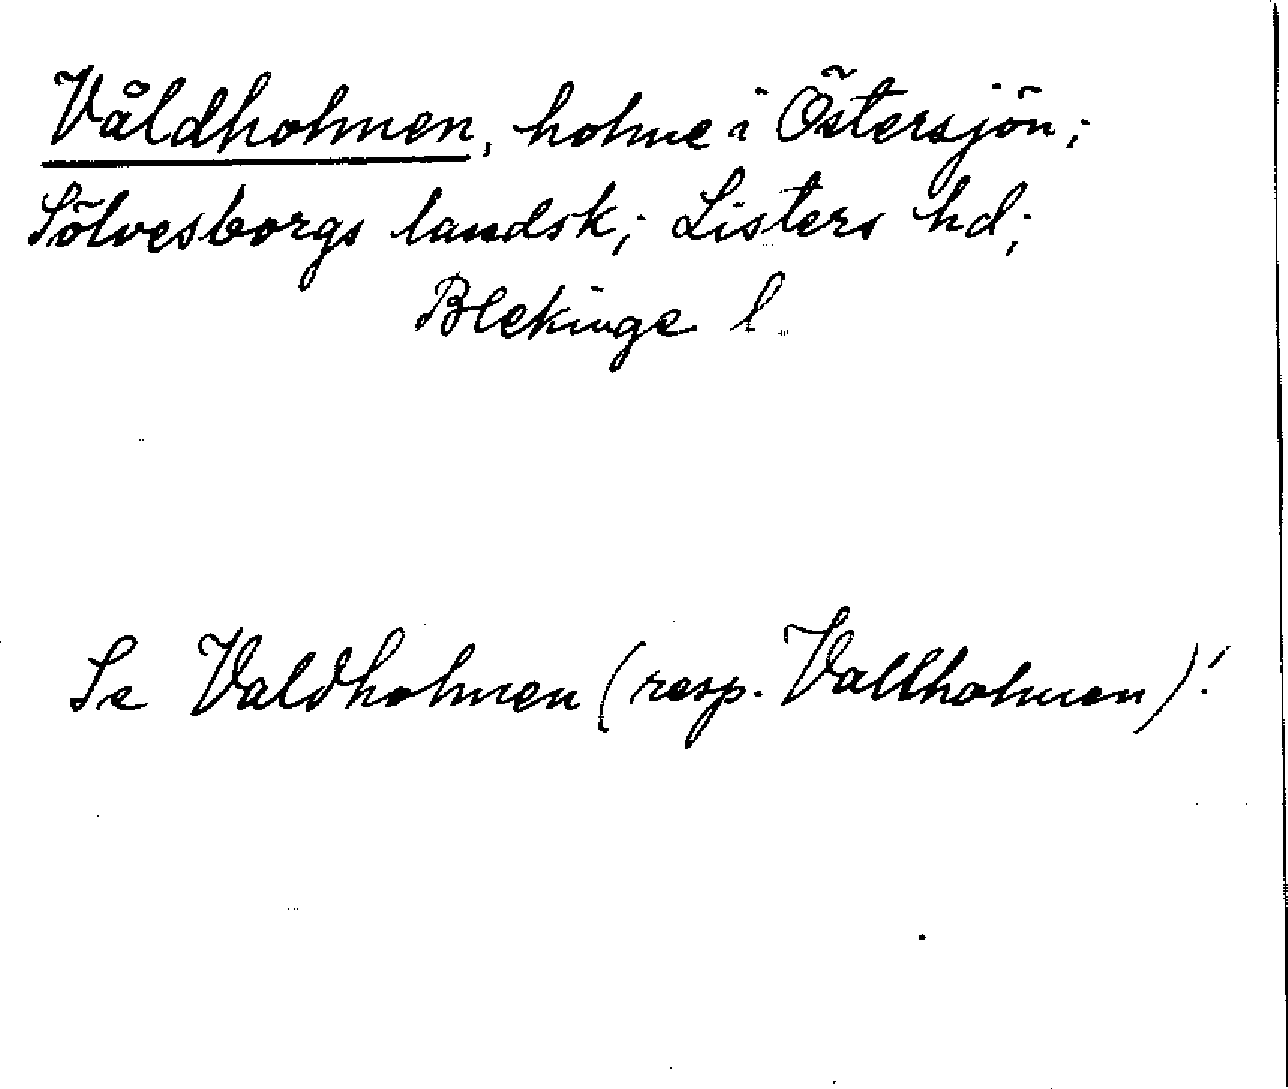 Våldholmen, holme i Östersjön;
Sölvesborgs landsk; Listers hd;
Blekinge l.
Se Valdholmen (resp. Vallholmen)!